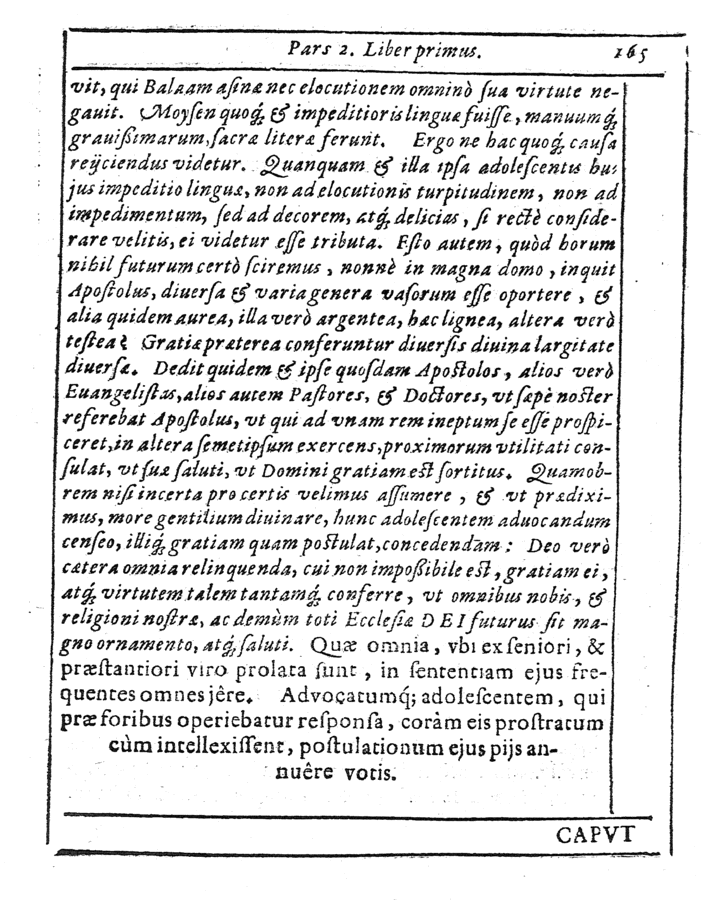 Pars 2. Liber primus. 165
vit, qui Balaam asinæ nec elocutionem omninò sua virtute ne-
gauit. Moysen quoq́; & impeditioris linguæ fuisse, manuumq́;
grauißimarum, sacræ literæ ferunt. Ergo ne hac quoq́; causa
reijciendus videtur. Quanquam & illa ipsa adolescentis hu-
jus impeditio linguæ, non ad elocutionis turpitudinem, non ad
impedimentum, sed ad decorem, atq́; delicias, si rectè conside-
rare velitis, ei videtur esse tributa. Esto autem, quòd horum
nihil futurum certò sciremus, nonnè in magna domo, inquit
Apostolus, diuersa & varia genera vasorum esse oportere, &
alia quidem aurea, illa verò argentea, hæc lignea, altera verò
testea? Gratiæ præterea conferuntur diuersis diuina largitate
diuersæ. Dedit quidem & ipse quosdam Apostolos, alios verò
Euangelistas, alios autem Pastores, & Doctores, vt sæpè noster
referebat Apostolus, vt qui ad vnam rem ineptum se esse prospi-
ceret, in altera semetipsum exercens, proximorum vtilitati con-
sulat, vt suæ saluti, vt Domini gratiam est sortitus. Quamob-
rem nisi incerta pro certis velimus assumere, & vt prædixi-
mus, more gentilium diuinare, hunc adolescentem aduocandum
censeo, illiq́; gratiam quam postulat, concedendam: Deo verò
cætera omnia relinquenda, cui non impoßibile est, gratiam ei,
atq́; virtutem talem tantamq́; conferre, vt omnibus nobis, &
religioni nostræ, ac demùm toti Ecclesiæ DEI futurus sit ma-
gno ornamento, atq́; saluti. Quæ omnia, vbi ex seniori, &
præstantiori viro prolata sunt, in sententiam ejus fre-
quentes omnes jêre. Advocatumq́; adolescentem, qui
præ foribus operiebatur responsa, coràm eis prostratum
cùm intellexissent, postulationum ejus pijs an-
nuêre votis.
CAPVT